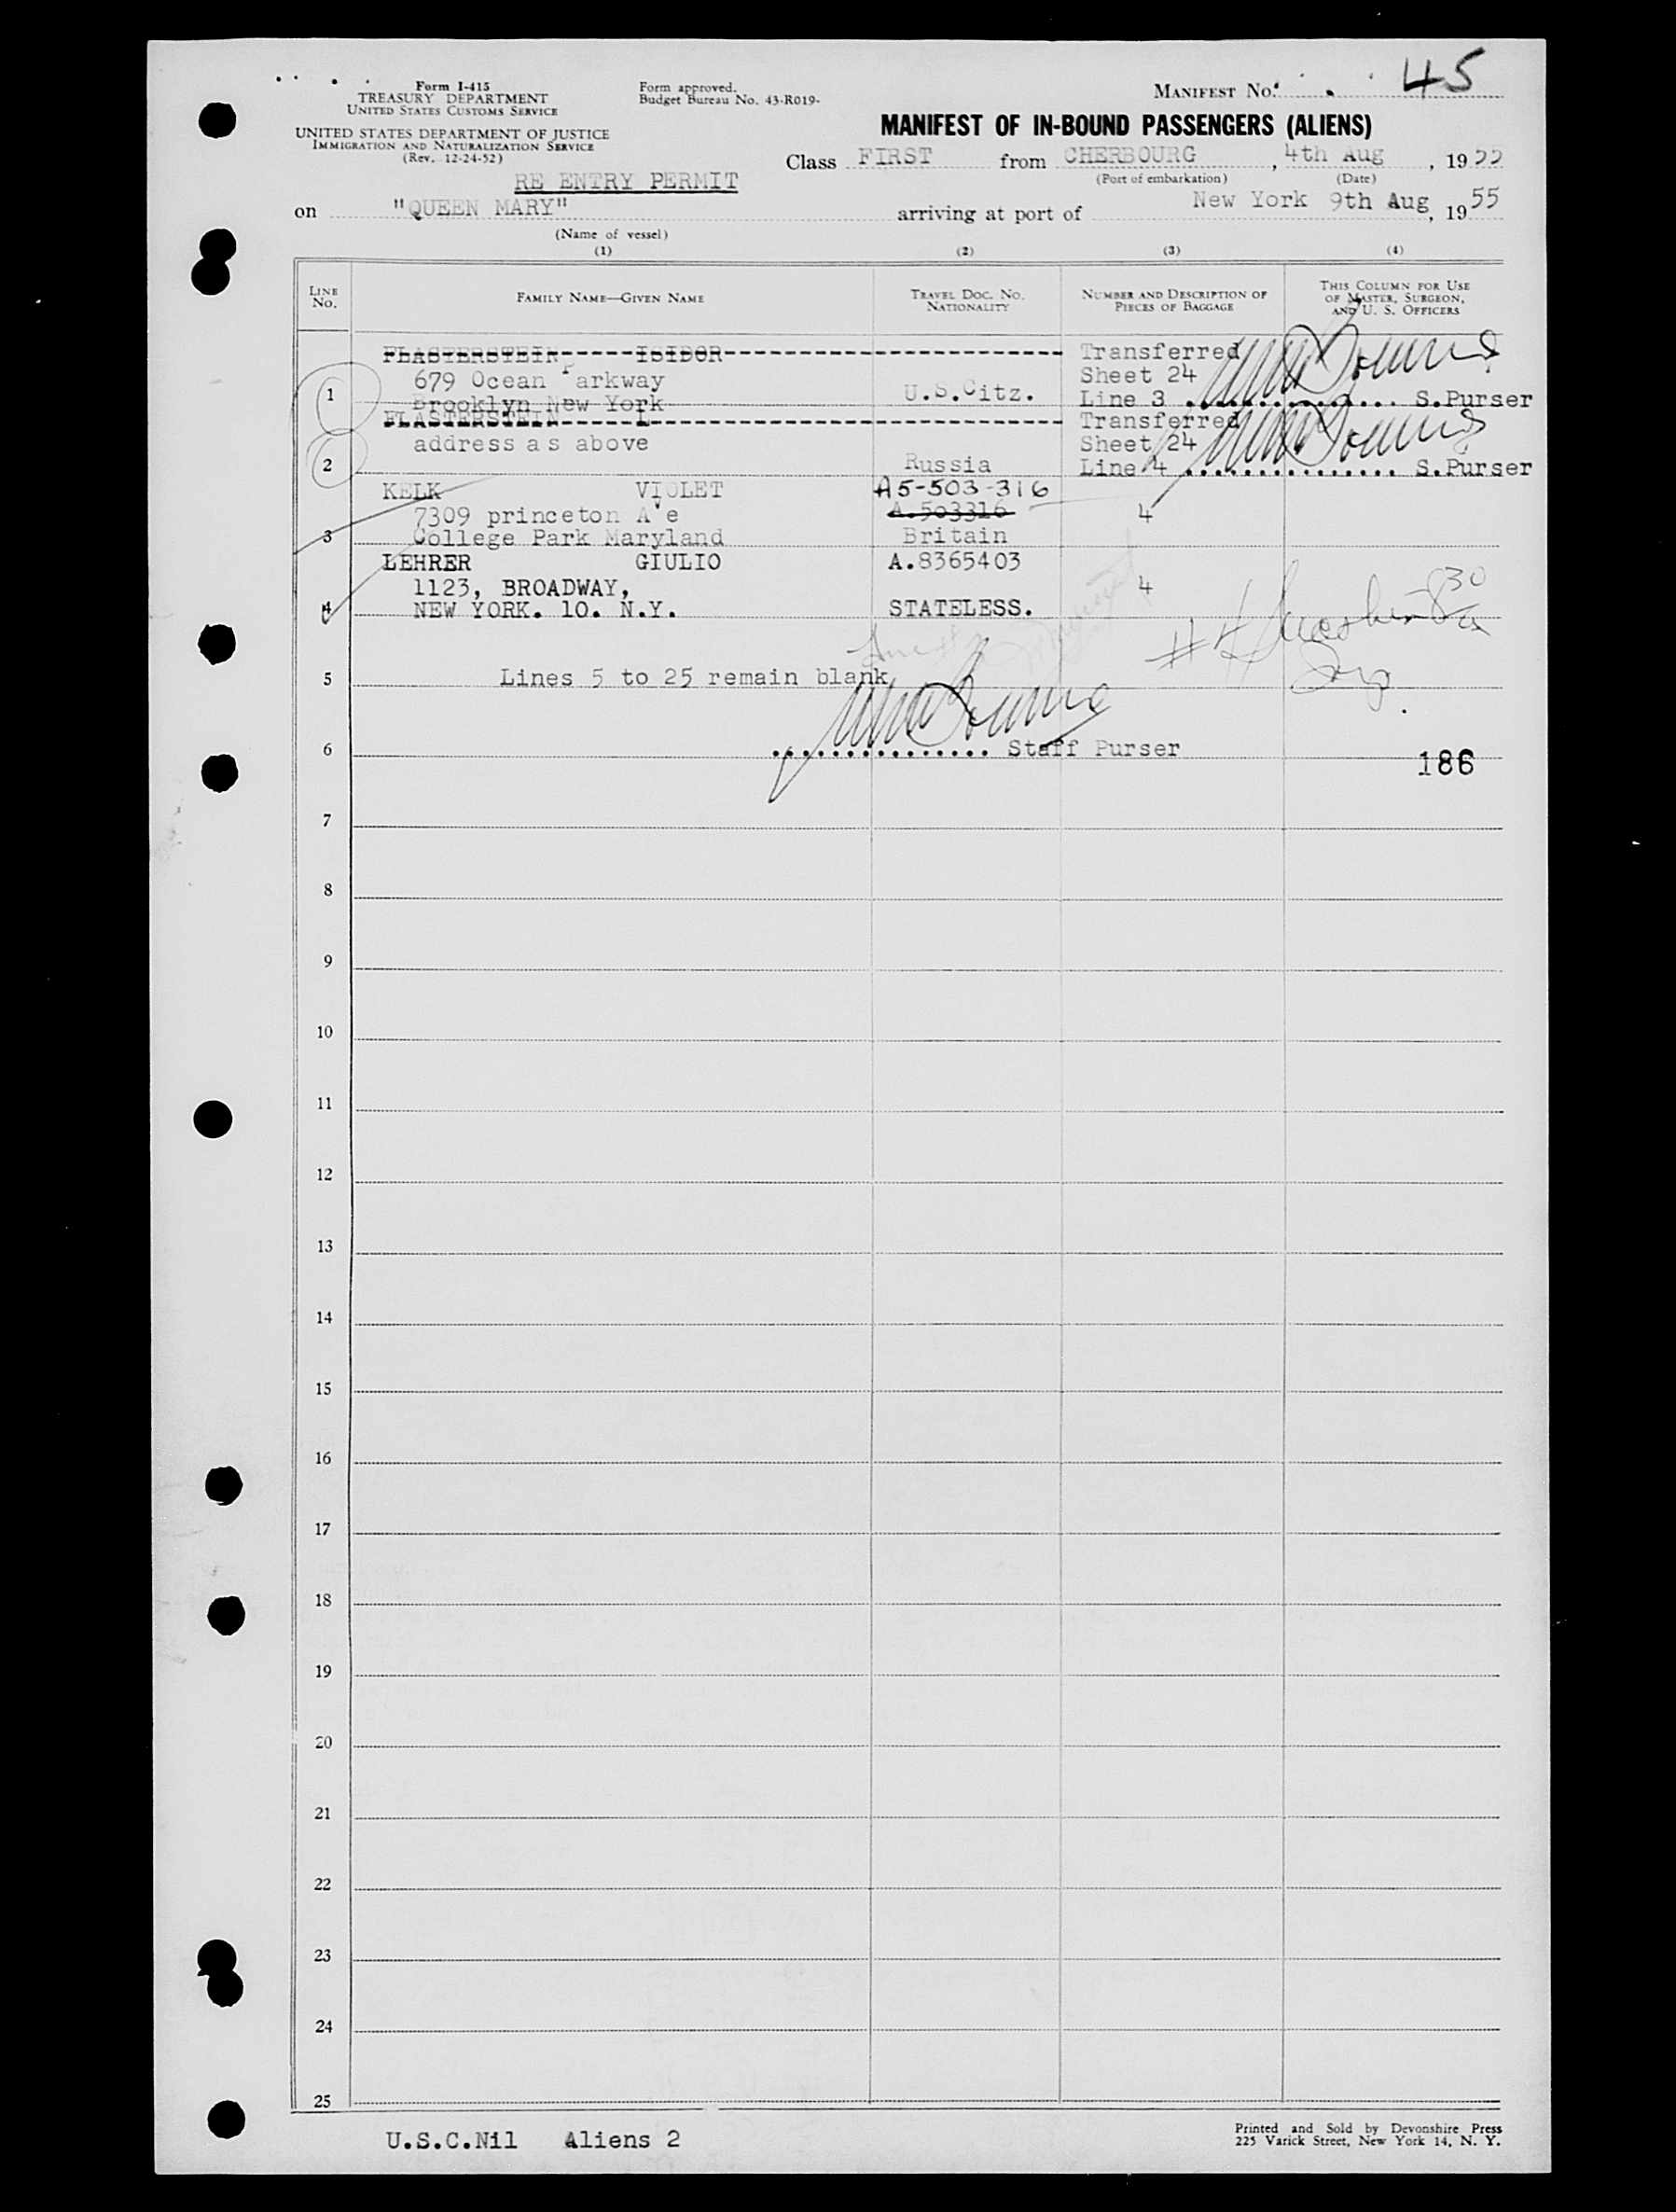 Form I-415
TREASURY DEPARTMENT
UNITED STATES CUSTOMS SERVICE
UNITED STATES DEPARTMENT OF JUSTICE
IMMIGRATION AND NATURALIZATION SERVICE
(Rev. 12-24-52)
Form approved.
Budget Bureau No. 43-R019-
MANIFEST NO. 45
MANIFEST OF IN-BOUND PASSENGERS (ALIENS)
Class FIRST from CHERBOURG, 4th Aug, 1955
(Port of embarkation) (Date)
RE ENTRY PERMIT
on "QUEEN MARY" arriving at port of New York 9th Aug, 1955
(Name of vessel)
(1) (2) (3) (4)
LINE NO.
FAMILY NAME—GIVEN NAME
TRAVEL DOC. NO. NATIONALITY
NUMBER AND DESCRIPTION OF PIECES OF BAGGAGE
THIS COLUMN FOR USE OF MASTER, SURGEON, AND U. S. OFFICERS
FLASTERSTEIN-----ISIDOR------------------------- Transferred
679 Ocean Parkway Sheet 24
1 Brooklyn New York U.S.Citz. Line 3 ............... S.Purser
FLASTERSTEIN-----L------------------------------ Transferred
address as above Sheet 24
2 Russia Line 4 ............... S.Purser
KELK VIOLET A5-503-316
7309 princeton A'e A.503316 4
3 College Park Maryland Britain
LEHRER GIULIO A.8365403
1123, BROADWAY, 4
4 NEW YORK. 10. N.Y. STATELESS.
5 Lines 5 to 25 remain blank
6 ............... Staff Purser
186
7
8
9
10
11
12
13
14
15
16
17
18
19
20
21
22
23
24
25
U.S.C.Nil Aliens 2
Printed and Sold by Devonshire Press
225 Varick Street, New York 14, N. Y.